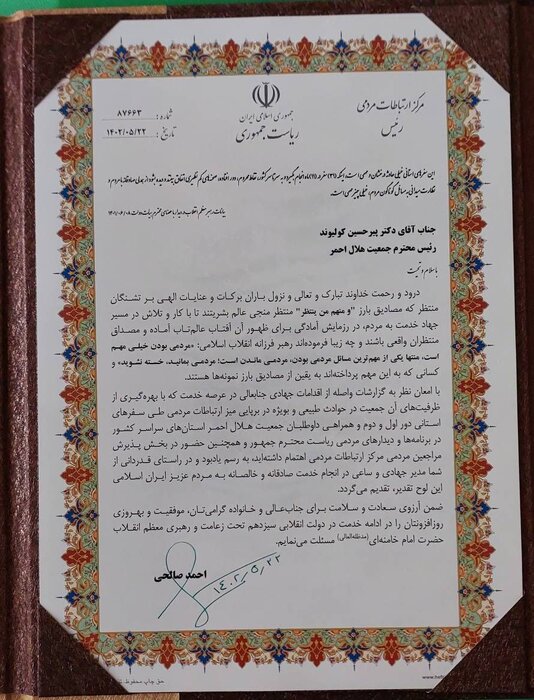 مرکز ارتباطات مردمی
رئیس
جمهوری اسلامی ایران
ریاست جمهوری
شماره : ۸۷۶۶۳
تاریخ : ۱۴۰۲/۰۵/۲۲
جناب آقای دکتر پیرحسین کولیوند
رئیس محترم جمعیت هلال احمر
با سلام و تحیت
درود و رحمت خداوند تبارک و تعالی و نزول باران برکات و عنایات الهی بر تشنگان
منتظر که مصادیق بارز "و منهم من ینتظر" منتظر منجی عالم بشریتند تا با کار و تلاش در مسیر
جهاد خدمت به مردم، در رزمایش آمادگی برای ظهور آن آفتاب عالم‌تاب آماده و مصداق
منتظران واقعی باشند و چه زیبا فرموده‌اند رهبر فرزانه انقلاب اسلامی؛ "مردمی بودن خیلی مهم
است، منتها یکی از مهم‌ترین مسائل مردمی بودن، مردمی ماندن است؛ مردمی بمانید، خسته نشوید" و
کسانی که به این مهم پرداخته‌اند به یقین از مصادیق بارز نمونه‌ها هستند.
با امعان نظر به گزارشات واصله از اقدامات جهادی جنابعالی در عرصه خدمت که با بهره‌گیری از
ظرفیت‌های آن جمعیت در حوادث طبیعی و بویژه در برپایی میز ارتباطات مردمی طی سفرهای
استانی دور اول و دوم و همراهی داوطلبان جمعیت هلال احمر استان‌های سراسر کشور
در برنامه‌ها و دیدارهای مردمی ریاست محترم جمهور و همچنین حضور در بخش پذیرش
مراجعین مردمی مرکز ارتباطات مردمی اهتمام داشته‌اید، به رسم یادبود و در راستای قدردانی از
شما مدیر جهادی و ساعی در انجام خدمت صادقانه و خالصانه به مردم عزیز ایران اسلامی
این لوح تقدیر، تقدیم می‌گردد.
ضمن آرزوی سعادت و سلامت برای جناب‌عالی و خانواده گرامی‌تان، موفقیت و بهروزی
روزافزونتان را در ادامه خدمت در دولت انقلابی سیزدهم تحت زعامت و رهبری معظم انقلاب
حضرت امام خامنه‌ای (مدظله‌العالی) مسئلت می‌نمایم.
احمد صالحی
۱۴۰۲,۵,۲۲
حق چاپ محفوظ